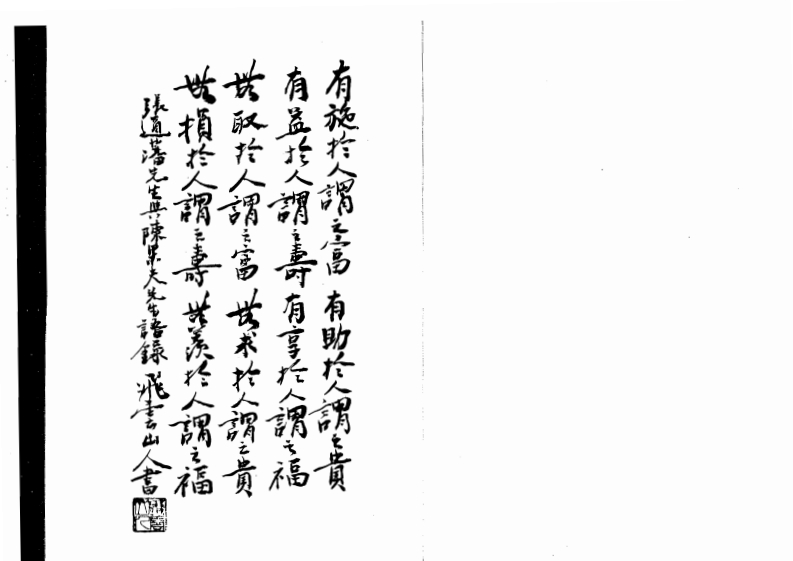 有施於人謂之富 有助於人謂之貴
有益於人謂之壽 有享於人謂之福
無取於人謂之富 無求於人謂之貴
無損於人謂之壽 無羨於人謂之福
張道藩先生與陳果夫先生語錄 飛雲山人書